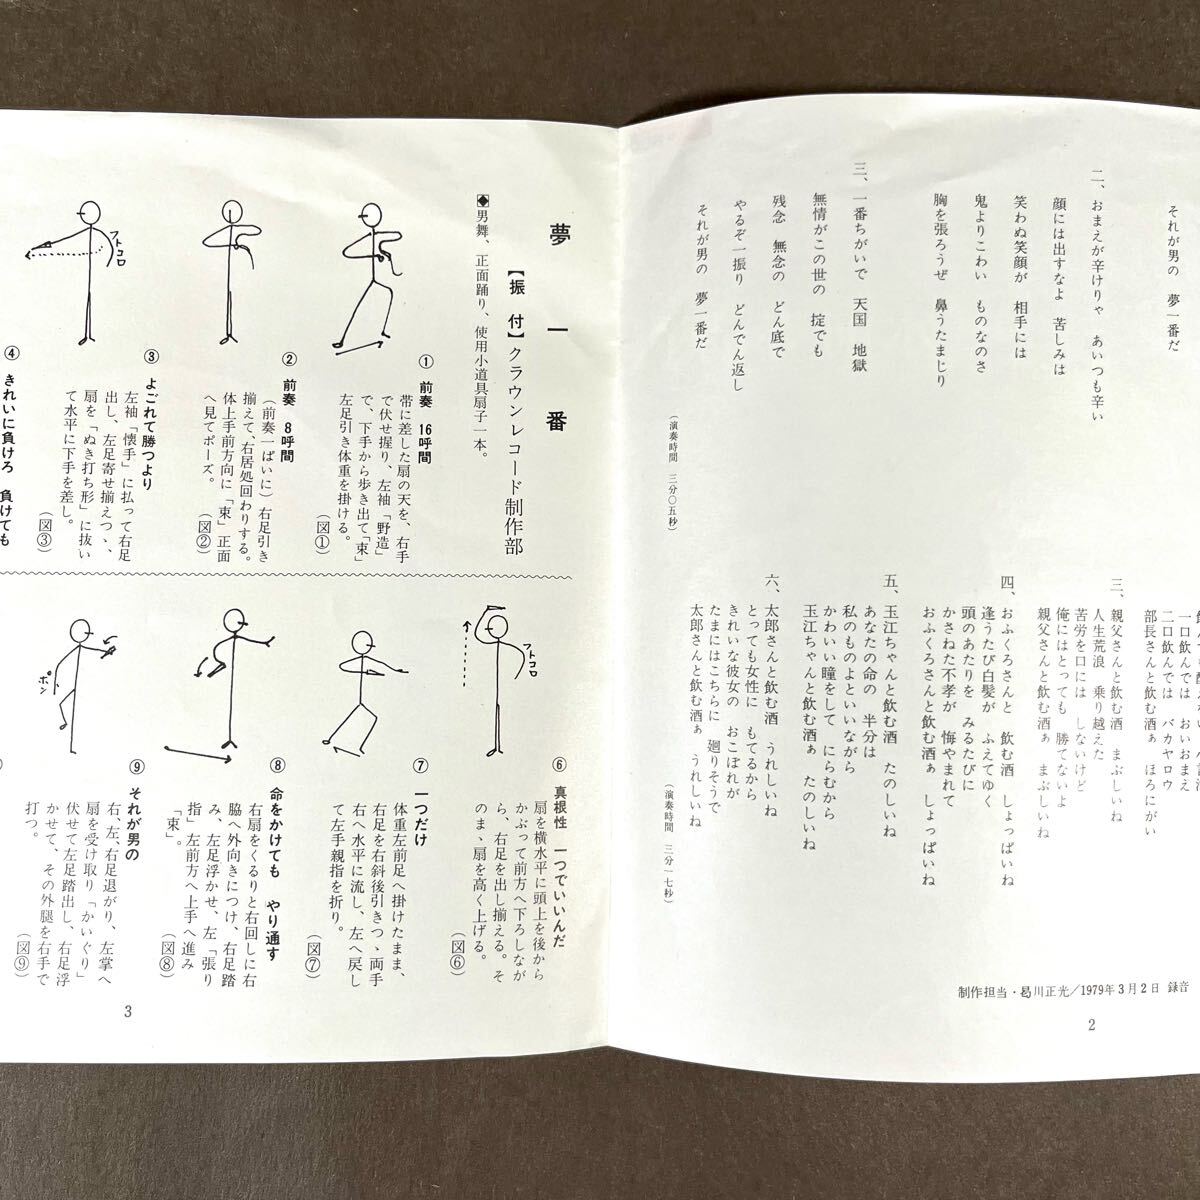 それが男の　夢一番だ
二、おまえが辛けりゃ　あいつも辛い
顔には出すなよ　苦しみは
笑わぬ笑顔が　相手には
鬼よりこわい　ものなのさ
胸を張ろうぜ　鼻うたまじり
三、一番ちがいで　天国　地獄
無情がこの世の　掟でも
残念　無念の　どん底で
やるぞ一振り　どんでん返し
それが男の　夢一番だ
（演奏時間　三分〇五秒）
一口飲んでは　おいおまえ
二口飲んでは　バカヤロウ
部長さんと飲む酒ぁ　ほろにがい
三、親父さんと飲む酒　まぶしいね
人生荒浪　乗り越えた
苦労を口には　しないけど
俺にはとっても　勝てないよ
親父さんと飲む酒ぁ　まぶしいね
四、おふくろさんと　飲む酒　しょっぱいね
逢うたび白髪が　ふえてゆく
頭のあたりを　みるたびに
かさねた不孝が　悔やまれて
おふくろさんと飲む酒ぁ　しょっぱいね
五、玉江ちゃんと飲む酒　たのしいね
あなたの命の　半分は
私のものよといいながら
かわいい瞳をして　にらむから
玉江ちゃんと飲む酒ぁ　たのしいね
六、太郎さんと飲む酒　うれしいね
とっても女性に　もてるから
きれいな彼女の　おこぼれが
たまにはこちらに　廻りそうで
太郎さんと飲む酒ぁ　うれしいね
（演奏時間　三分一七秒）
制作担当・曷川正光／1979年3月2日 録音
2
夢一番
【振付】クラウンレコード制作部
◆男舞、正面踊り、使用小道具扇子一本。
① 前奏　16呼間
帯に差した扇の天を、右手
で伏せ握り、左袖「野造」
で、下手から歩き出て「束」
左足引き体重を掛ける。
（図①）
② 前奏　8呼間
（前奏一ぱいに）右足引き
揃えて、右居処回わりする。
体上手前方向に「束」正面
へ見てポーズ。
（図②）
③ よごれて勝つより
左袖「懐手」に払って右足
出し、左足寄せ揃えつゝ、
扇を「ぬき打ち形」に抜い
て水平に下手を差し。
（図③）
④ きれいに負けろ　負けても
フトコロ
⑥ 真根性　一つでいいんだ
扇を横水平に頭上を後から
かぶって前方へ下ろしなが
ら、右足を出し揃える。そ
のまゝ扇を高く上げる。
（図⑥）
⑦ 一つだけ
体重左前足へ掛けたまま、
右足を右斜後引きつゝ両手
右へ水平に流し、左へ戻し
て左手親指を折り。
（図⑦）
⑧ 命をかけても　やり通す
右扇をくるりと右回しに右
脇へ外向きにつけ、右足踏
み、左足浮かせ、左「張り
指」左前方へ上手へ進み
「束」。
（図⑧）
⑨ それが男の
右、左、右足退がり、左掌へ
扇を受け取り「かいぐり」
伏せて左足踏出し、右足浮
かせて、その外腿を右手で
打つ。
（図⑨）
フトコロ
ポン
3